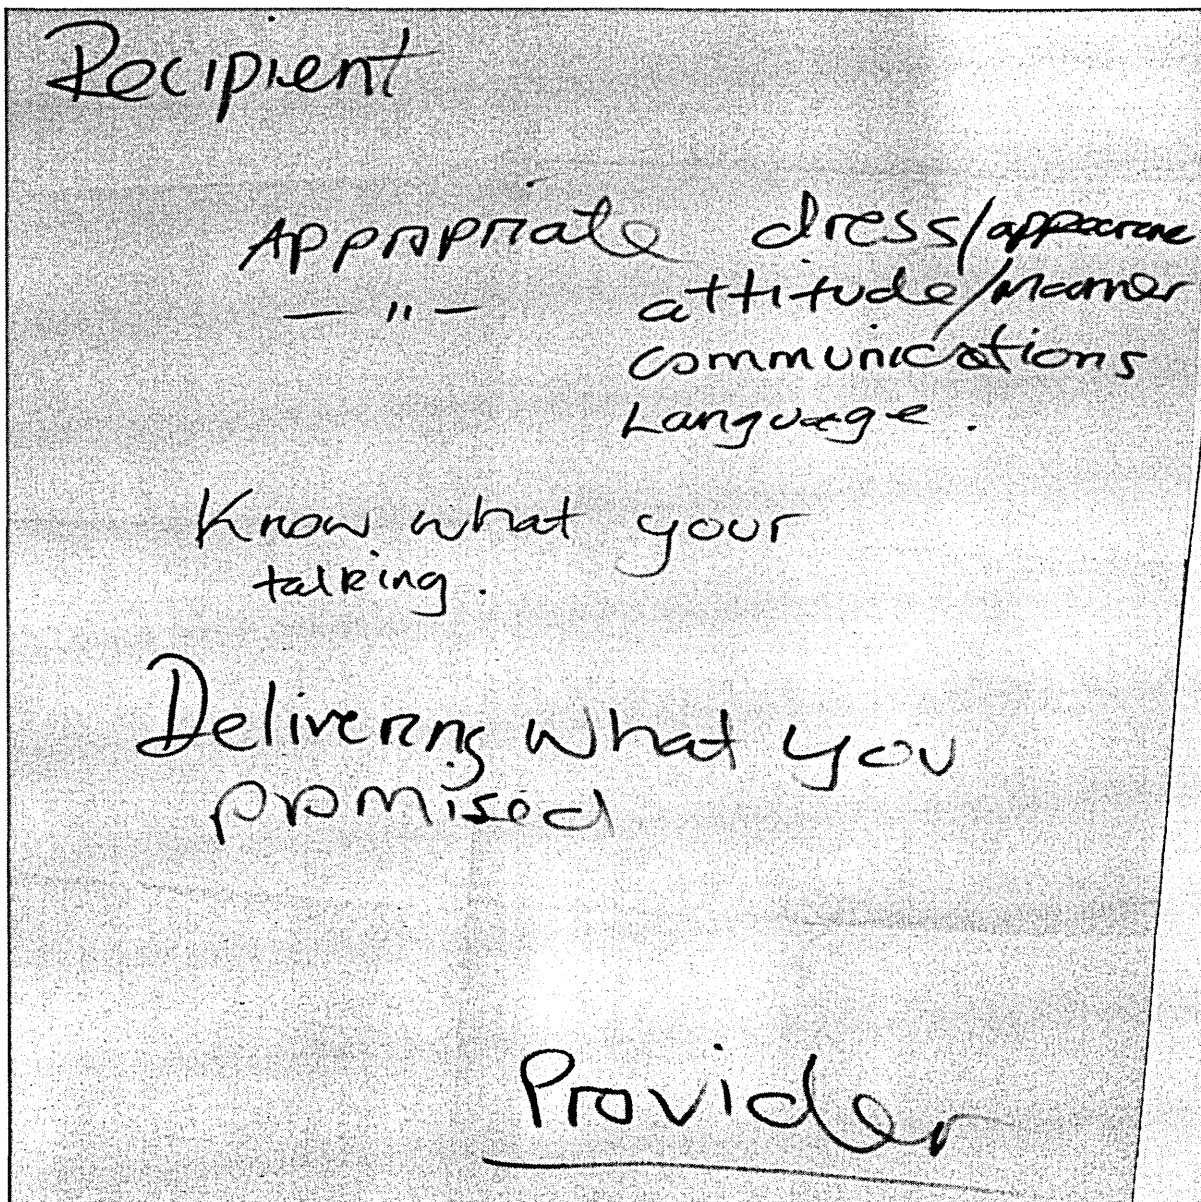 Recipient
Appropriate dress/appearance
— " — attitude/manner
communications
Language.
Know what your
talking.
Delivering what you
promised
Provider